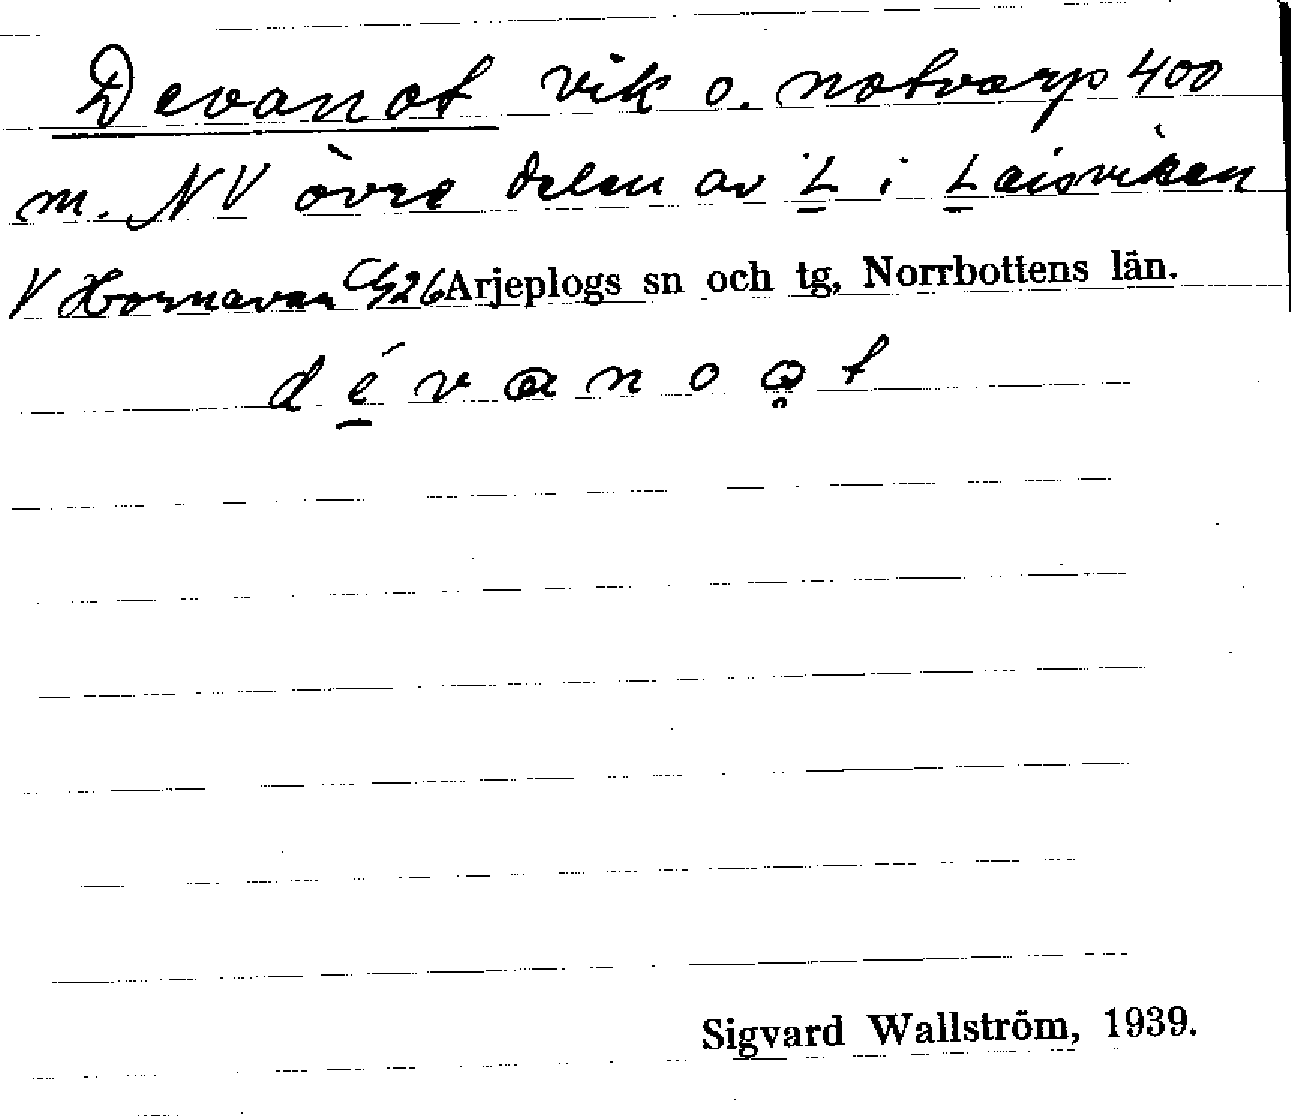 Devanot vik o. notvarp 400
m. NV övre delen av L i Laisviken
V Hornavan 26 Arjeplogs sn och tg, Norrbottens län.
d é v a n o o̥ t
Sigvard Wallström, 1939.